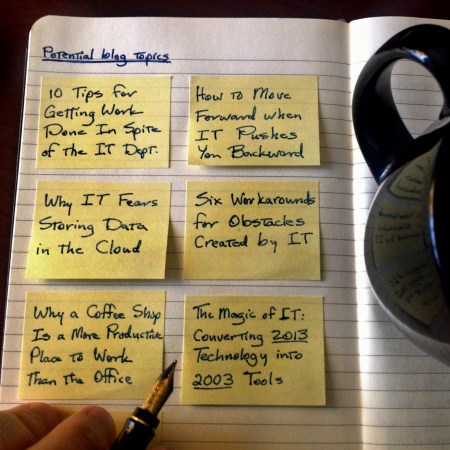 Potential blog topics
10 Tips for
Getting Work
Done In Spite
of the IT Dept.
How to Move
Forward when
IT Pushes
You Backward
Why IT Fears
Storing Data
in the Cloud
Six Workarounds
for Obstacles
Created by IT
Why a Coffee Shop
Is a More Productive
Place to Work
Than the Office
The Magic of IT:
Converting 2013
Technology into
2003 Tools